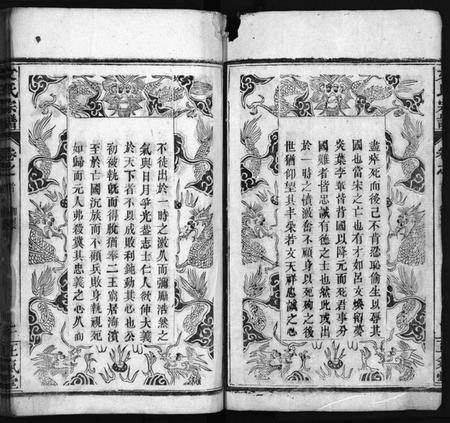 盡瘁死而後己不肯忍恥偷生以辱其
國也當宋之亡也有才如呂文煥留夢
炎葉李輩皆背國以降元而死君事分
國難者皆忠誠有德之士也然此或出
於一時之憤激奮不顧身以死殉之後
世猶仰望其丰采若文天祥忠誠之心
不徒出於一時之激久而彌厲浩然之
氣與日月爭光盖志士仁人欲伸大義
於天下者不以成敗利鈍動其心也公
初被執旣而得脫猶奉二王竄居海濱
至於亡國沉族而不顧兵敗身執視死
如歸而元人弗殺冀其忠義之心久而
文氏宗譜
卷之
正氣堂